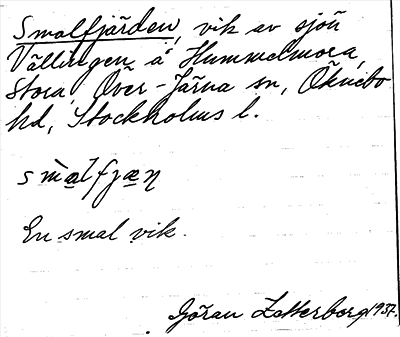 Smalfjärden, vik av sjön
Vällingen å Hummelmora,
Stora, Över-Järna sn, Öknebo
hd, Stockholms l.
smàlfjæṇ
En smal vik.
Göran Zetterberg 1937.